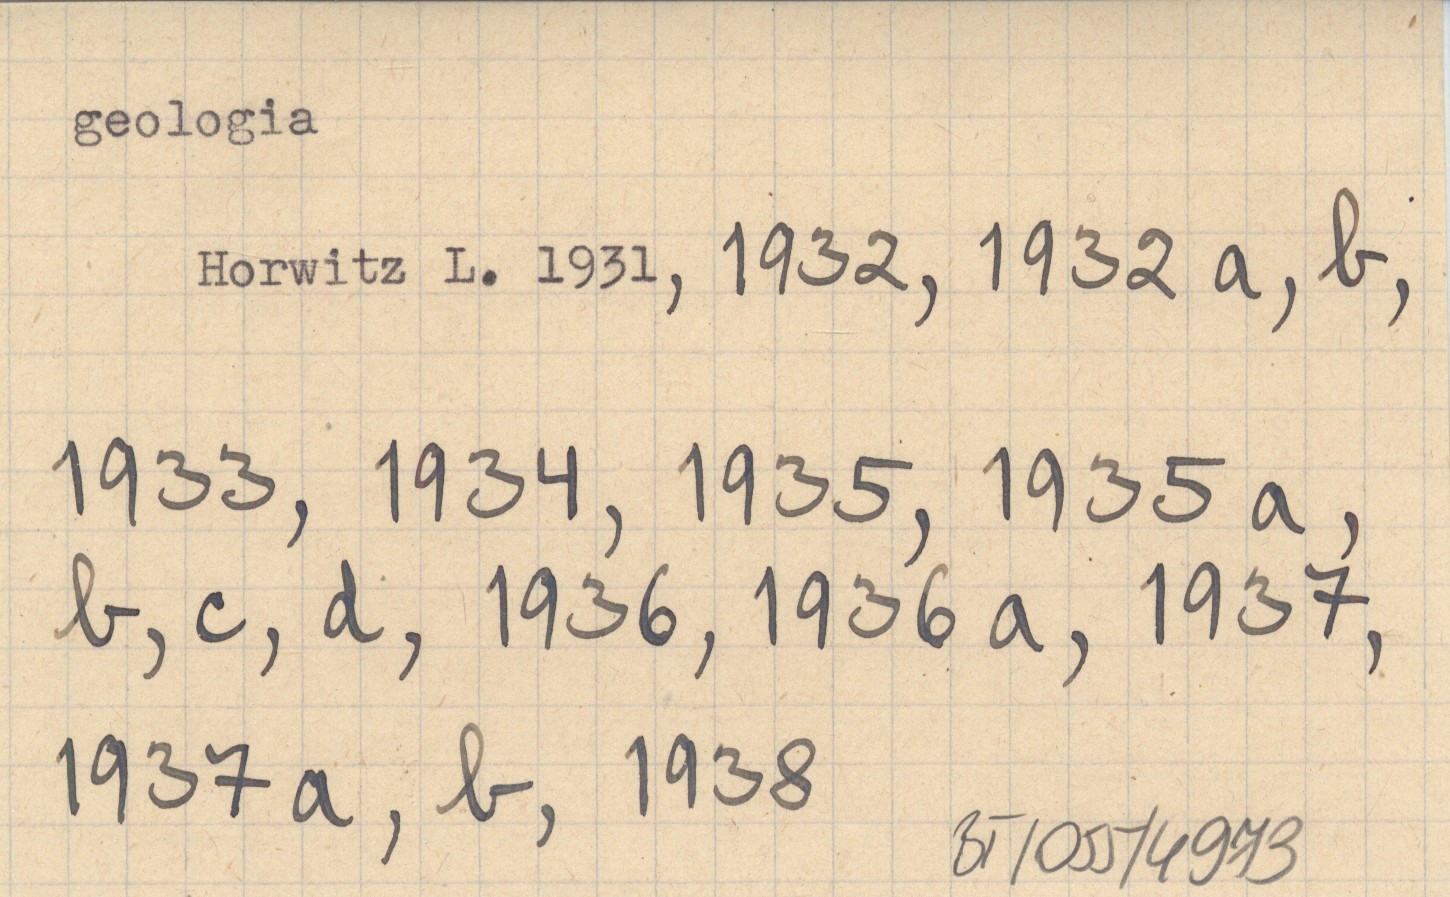 geologia
Horwitz L. 1931, 1932, 1932 a, b,
1933, 1934, 1935, 1935 a,
b, c, d, 1936, 1936 a, 1937,
1937 a, b, 1938
BT/055/4973